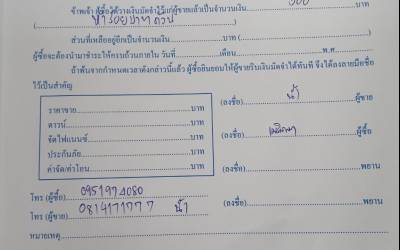 ข้าพเจ้า ผู้ซื้อได้วางเงินมัดจำไว้แก่ผู้ขายแล้วเป็นจำนวนเงิน 500 บาท
(ห้าร้อยบาทถ้วน)
ส่วนที่เหลืออยู่อีกเป็นจำนวนเงิน................บาท (................)
ผู้ซื้อจะต้องนำมาชำระให้ครบถ้วนภายใน วันที่................เดือน................พ.ศ.
ถ้าพ้นจากกำหนดเวลาดังกล่าวนี้แล้ว ผู้ซื้อยินยอมให้ผู้ขายริบเงินมัดจำได้ทันที จึงได้ลงลายมือชื่อ
ไว้เป็นสำคัญ
ราคาขาย................บาท
ดาวน์................บาท
จัดไฟแนนซ์................บาท
ประกันภัย................บาท
ค่าจัด/ค่าโอน................บาท
(ลงชื่อ) น้ำ ผู้ขาย
(ลงชื่อ) ผู้ซื้อ
(ลงชื่อ)................พยาน
(ลงชื่อ)................พยาน
โทร (ผู้ซื้อ) 0951974080
โทร (ผู้ขาย) 0814171777 น้ำ
หมายเหตุ